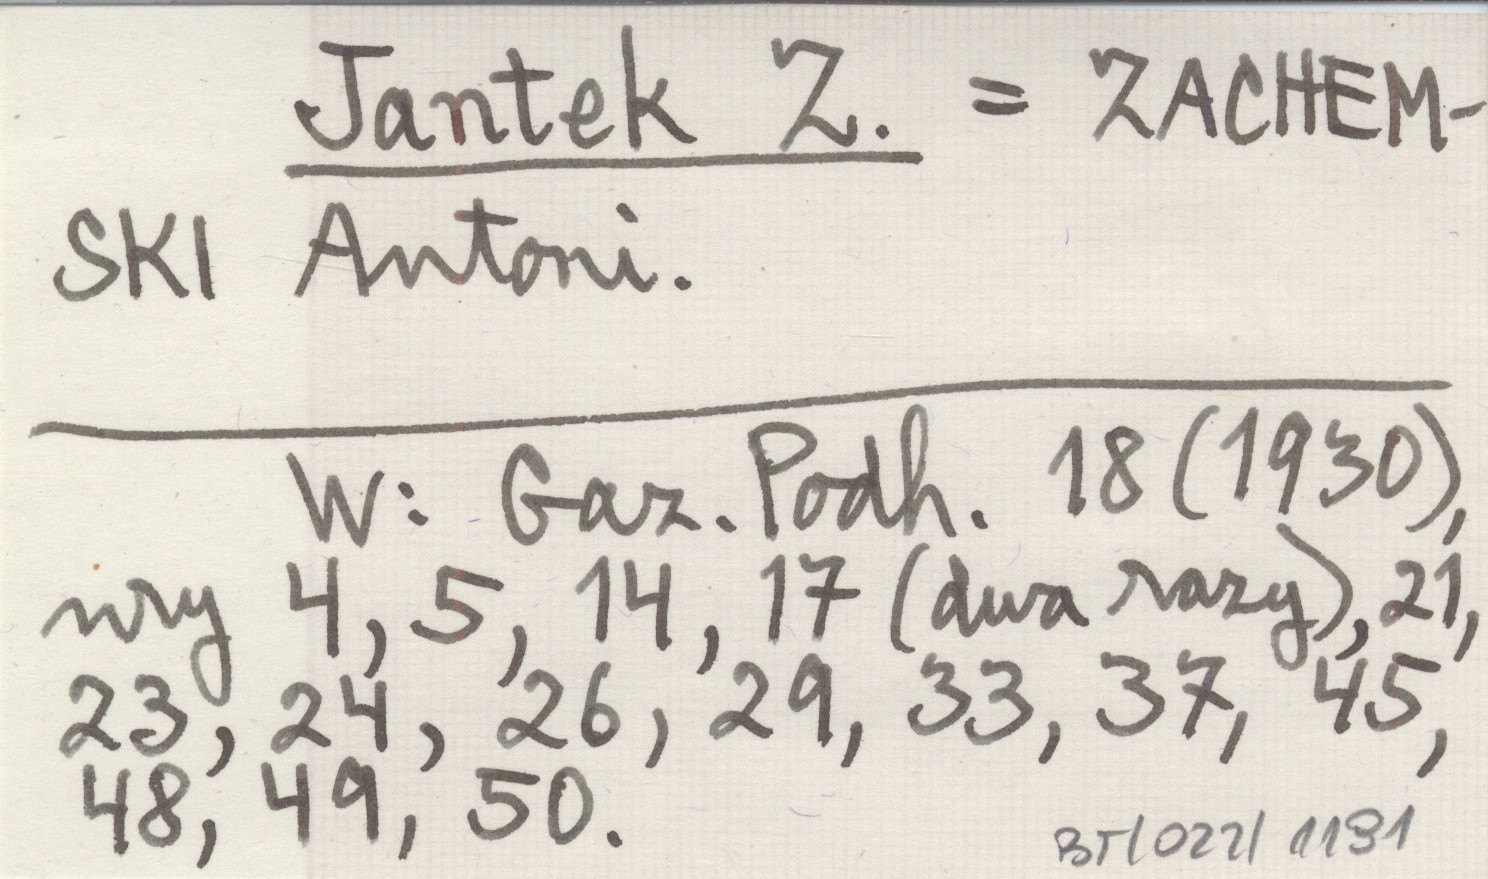 Jantek Z. = ZACHEM-
SKI Antoni.
W: Gaz. Podh. 18 (1930),
nry 4, 5, 14, 17 (dwa razy), 21,
23, 24, 26, 29, 33, 37, 45,
48, 49, 50.
BT/022/1191